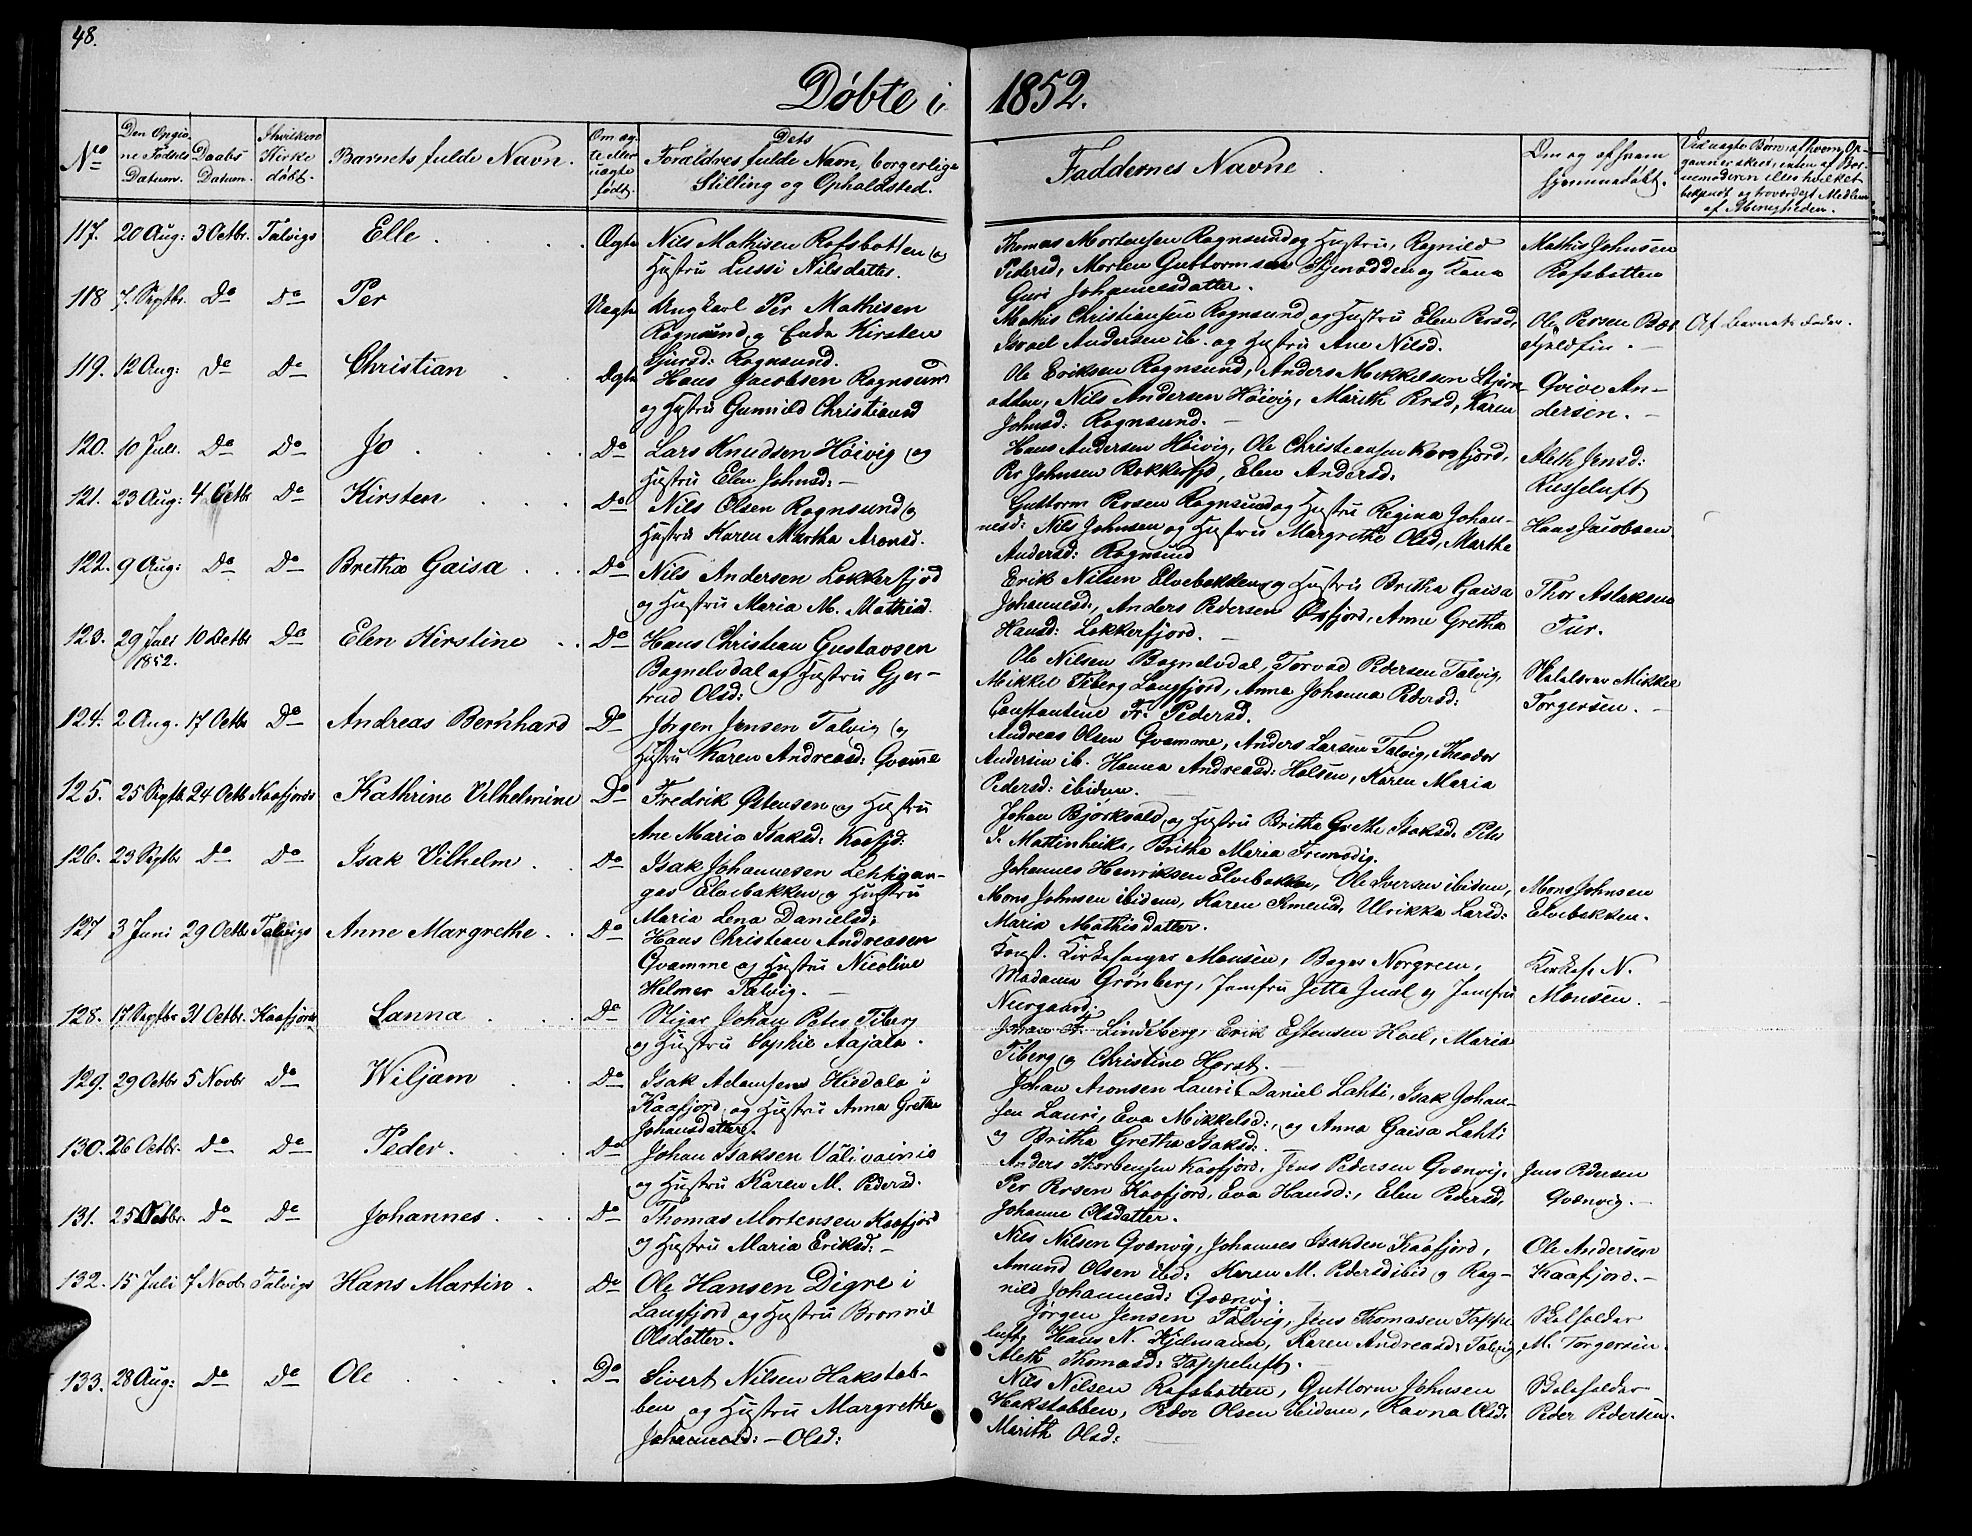 48.
Døbte i 1852.
No
Den Opgivne Fødsels Datum.
Daabs Datum.
I hvilken Kirke døbt.
Barnets fulde Navn.
Om ægte eller uægte født.
Dets Forældres fulde Navn, borgerlige Stilling og Opholdsted.
Faddernes Navne
Om og af hvem hjemmedøbt.
Ved uægte Børn, af hvem Opgaven er skeet, enten af Barnemoderen eller hvilket bekjendt og troværdigt Medlem af Menigheden.
117. 20 Aug: 3 Octbr. Talvigs Elle Ægte Nils Mathisen Rafsbotten og
Hustru Lussi Nilsdatter.
Thomas Mortensen Rognsund og Hustru, Ragnild
Pedersd, Morten Guttormsen og Kone
Guri Johannesdatter.
Mathis Johnsen
Rafsbotten
118 7. Septbr. Do Do Per Uægte Ungkarl Per Mathisen
Rognsund og Enke Kirsten
Sjursd: Rognsund.
Mathis Christiansen Rognsund og Hustru Elen Persd,
Israel Andersen ib. og Hustru Ane Nilsd.
Ole Persen
Fjeldfin.
Af Barnets Fader.
119. 12 Aug: Do Do Christian Ægte Hans Jacobsen Rognsund
og Hustru Gunnild Christiansd
Ole Eriksen Rognsund, Anders Mikkelsen
Nils Andersen Høivig, Marith Persd, Karen
Johnsd: Rognsund.
Qvive Andersen.
120. 10 Juli. Do Do Jo Do Lars Knudsen Høivig og
Hustru Elen Johnsd:
Hans Andersen Høivig, Ole Christensen Korsfjord,
Per Johnsen Lokkerfjd, Elen Andersd.
Aleth Jensd:
Russeluft
121. 23 Aug: 4 Octbr Do Kirsten Do Nils Olsen Rognsund og
Hustru Karen Martha Aronsd.
Guttorm Persen Rognsund og Hustru Regina Johannesd:
Nils Johnsen og Hustru Margrethe Olsd, Marthe
Andersd: Rognsund
Hans Jacobsen
122. 9 Aug: Do Do Bretha Gaisa Do Nils Andersen Lokkerfjod
og Hustru Maria M. Mathisd.
Erik Nilsen Elvebakken og Hustru Britha Gaisa
Johannesd:, Anders Pedersen Øxfjord, Anne Gretha
Hansd: Lokkerfjord.
Thor Aslaksen
Tur.
123. 29 Juli 1852. 10 Octbr Do Elen Kirstine Do Hans Christian Gustavsen
Bognelvdal og Hustru Gjertrud
Olsd:
Ole Nilsen Bognelvdal, Torvad Pedersen Talvig,
Mikkel Tiberg Langfjord, Anna Johanna Pedersd:
Constantine Fr. Pedersd.
Skolelærer Mikkel
Torgersen.
124. 2 Aug. 17 Octbr Do Andreas Bernhard Do Jørgen Jensen Talvig og
Hustru Karen Andreasd: Qvamme
Andreas Olsen Qvamme, Anders Larsen Talvig, Theodor
Andersen ib. Hanna Andreasd: Holsen, Karen Maria
Pedersd: ibidem.
125. 25 Septb. 24 Octb Kaafjords Kathrine Vilhelmine Do Fredrik Østensen og Hustru
Ane Maria Isaksd: Kaafjd:
Johan Bjørkvald og Hustru Britha Grethe Isaksd: Peter
J. Mattinheiki, Britha Maria Fremodig.
126. 23 Septbr Do Do Isak Vilhelm Do Isak Johannesen Lehtigangas
Elvebakken og Hustru
Maria Lena Danielsd:
Johannes Henriksen Elvebakken, Ole Iversen ibidem,
Mons Johnsen ibidem, Karen Simensd, Ulrikka Larsd:
Maria Mathisdatter.
Mons Johnsen
Elvebakken.
127 3 Juni 29 Octbr Talvigs Anne Margrethe Do Hans Christian Andreasen
Qvamme og Hustru Nicoline
Helmer Talvig.
Const. Kirkesanger Monsen, Bager Norgreen,
Madame Grønberg, Jomfru Jetta Juel og Jomfru
Neergaard.
Kirkes. N.
Monsen.
128. 17 Septbr 31 Octbr. Kaafjords Sanna Do Stiger Johan Peter Tiberg
og Hustru Sophie Aajala.
Johan F. Lindeberg, Erik Estensen Hoel, Maria
Tiberg og Christine Horst.
129. 29 Octbr 5 Novbr Do Wiljam Do Isak Adamsen Hisdala i
Kaafjord og Hustru Anna Grethe
Johansdatter.
Johan Aronsen Lauri, Daniel Lahti, Isak Johansen
Lauri, Eva Mikkelsd:, og Anna Gaisa Lahti
og Britha Gretha Isaksd:
130. 26 Octbr. Do Do Peder. Do Johan Isaksen Välivainio
og Hustru Karen M. Pedersd.
Anders Thorbensen Kaafjord, Jens Pedersen Qvænvig,
Per Persen Kaafjord, Eva Hansd:, Elen Pedersd,
Johanne Olsdatter.
Jens Pedersen
Qvænvig.
131. 25 Octbr. Do Do Johannes. Do Thomas Mortensen Kaafjord
og Hustru Maria Eriksd:
Nils Nilsen Qvænvig, Johannes Isaksen Kaafjord,
Amund Olsen ibd: Karen M. Pedersd ibid og Ragnild
Johannesd: Qvænvig.
Ole Andersen
Kaafjord.
132. 15 Juli 7 Novbr Talvigs Hans Martin. Do Ole Hansen Digre i
Langfjord og Hustru Bronnil
Olsdatter.
Jørgen Jensen Talvig, Jens Thomasen Tappeluft,
Hans N. Kjelmann, Karen Andreasd: Talvig,
Aleth Thomasd: Tappeluft.
Skoleholder
M. Torgersen.
133. 28 Aug: Do Do Ole Do Sivert Nilsen Hakstabben
og Hustru Margrethe
Johannesd: - Olsd:
Nils Nilsen Rafsbotten, Guttorm Johnsen
Hakstabben, Peder Olsen ibidem, Ravna Olsd:
Marith Olsd:
Skoleholder
Peder Pedersen.